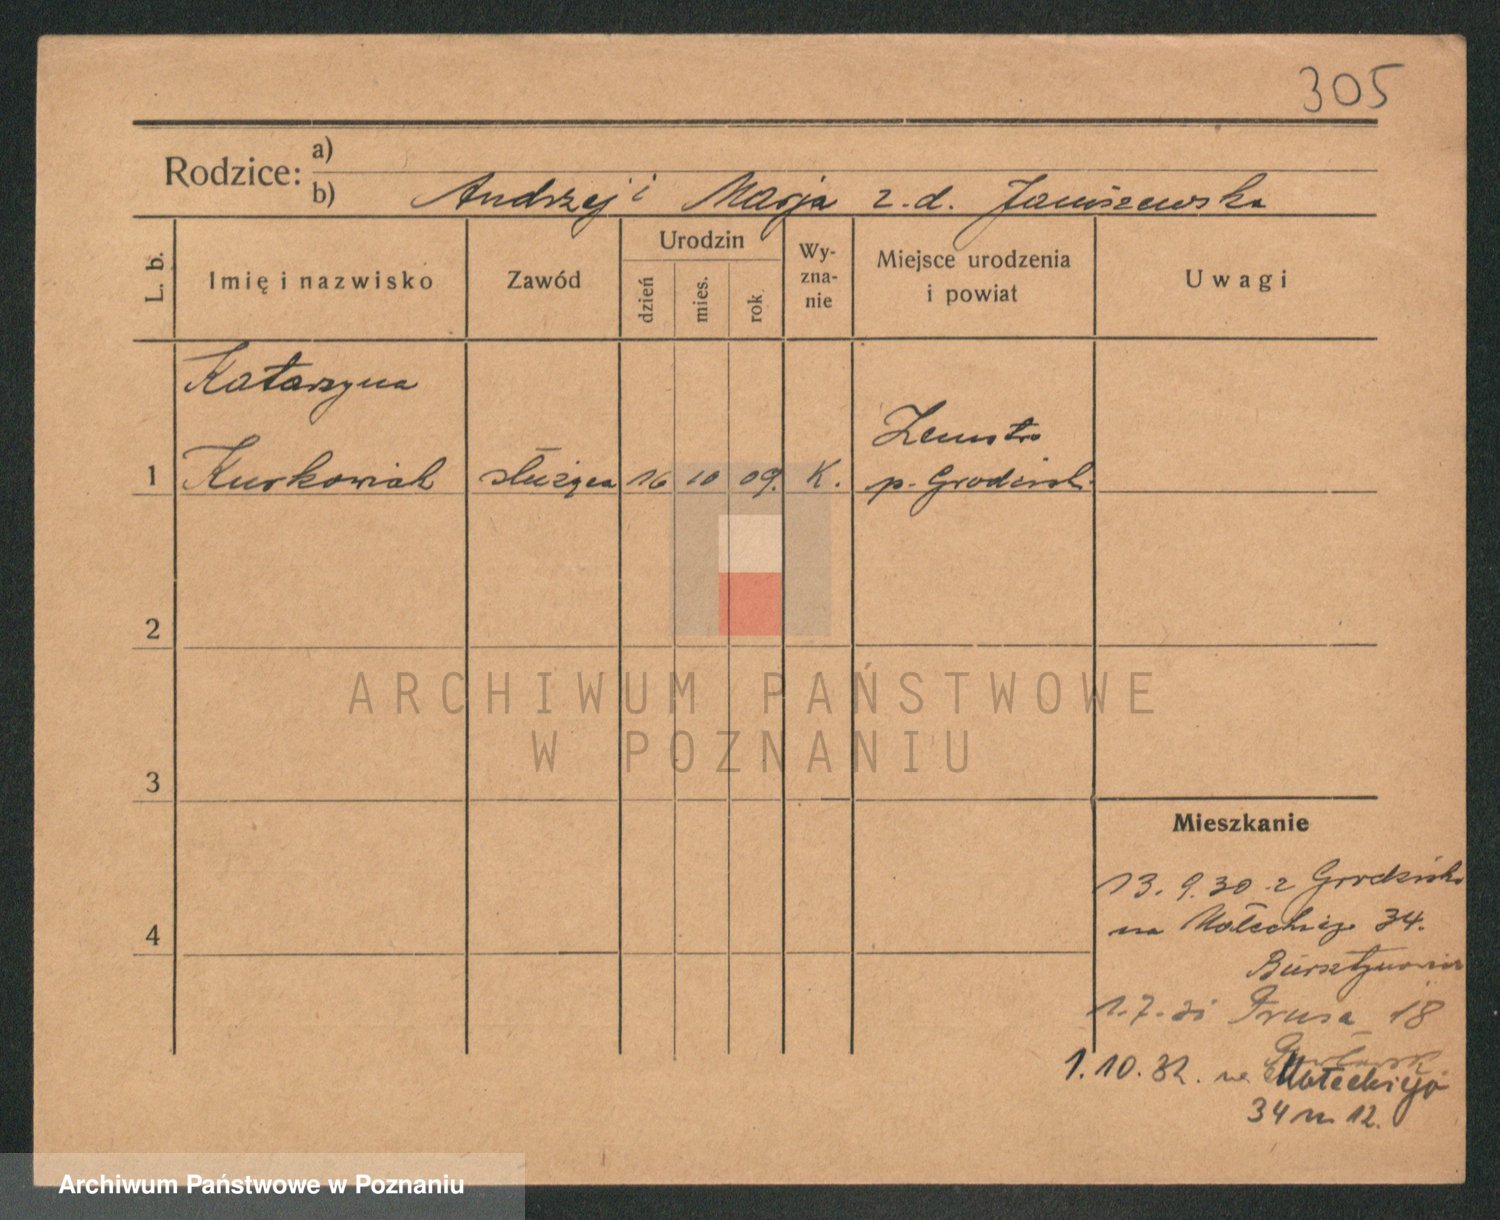 305
Rodzice: a)
b) Andrzej i Marja z. d. Janiszewska
L. b.
Imię i nazwisko
Zawód
Urodzin
dzień
mies.
rok
Wy-
zna-
nie
Miejsce urodzenia
i powiat
Uwagi
Katarzyna
1 Kurkowiak służąca 16 10 09. K.
p. Grodzisk.
2
3
4
Mieszkanie
13. 9. 30 z Grodziska
na Małeckiego 34.
1. 7. 31 Prusa 18
1. 10. 32. na Małeckiego
34 m 12.
ARCHIWUM PAŃSTWOWE
W POZNANIU
Archiwum Państwowe w Poznaniu